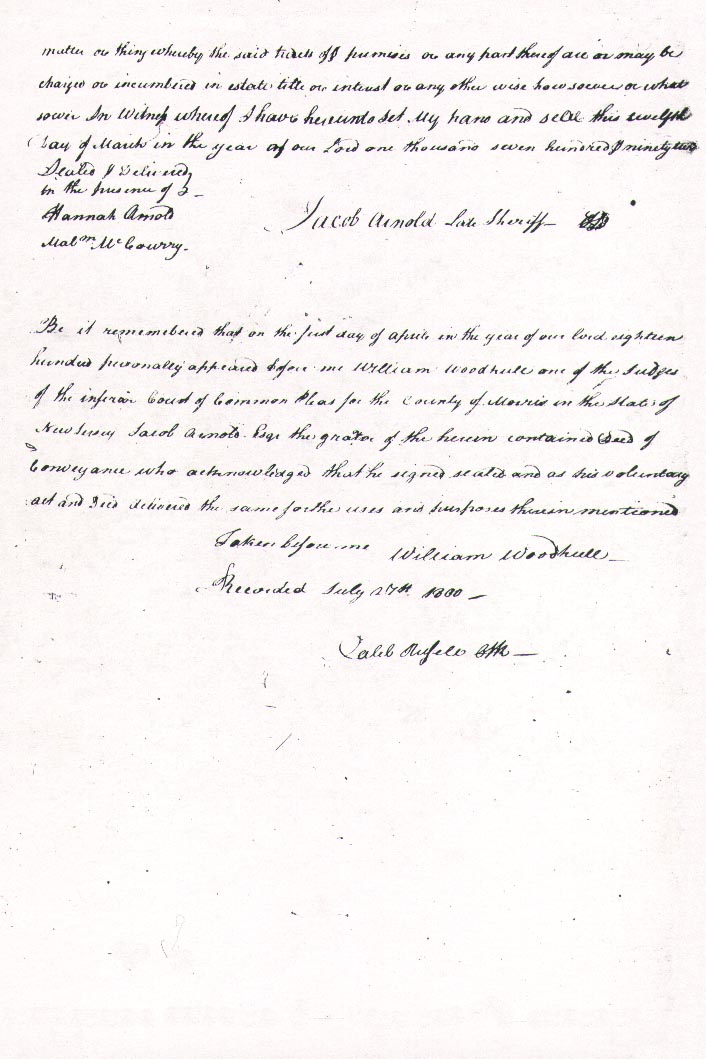 matter or thing whereby the said tracts of & premises or any part thereof are or may be
charged or incumbered in estate title or intrust or any other wise how soever or what
soever In Witness whereof I have hereunto set My hand and seal this twelfth
Day of March in the year of our Lord one thousand seven hundred & ninety two
Sealed & Delivered
in the presence of
Hannah Arnold
Jacob Arnold Late Sheriff
Malm McCourry
Be it remembered that on the first day of april in the year of our lord eighteen
hundred personally appeared before me William Woodhull one of the Judges
of the inferior Court of Common Pleas for the County of Morris in the State of
New Jersey Jacob Arnold Esqr the grator of the herein contained Deed of
Conveyance who acknowledged that he signed sealed and as his voluntary
act and Deed delivered the same for the uses and purposes therein mentioned
Taken before me William Woodhull
Recorded July 27th 1800
Caleb Rusell Clk